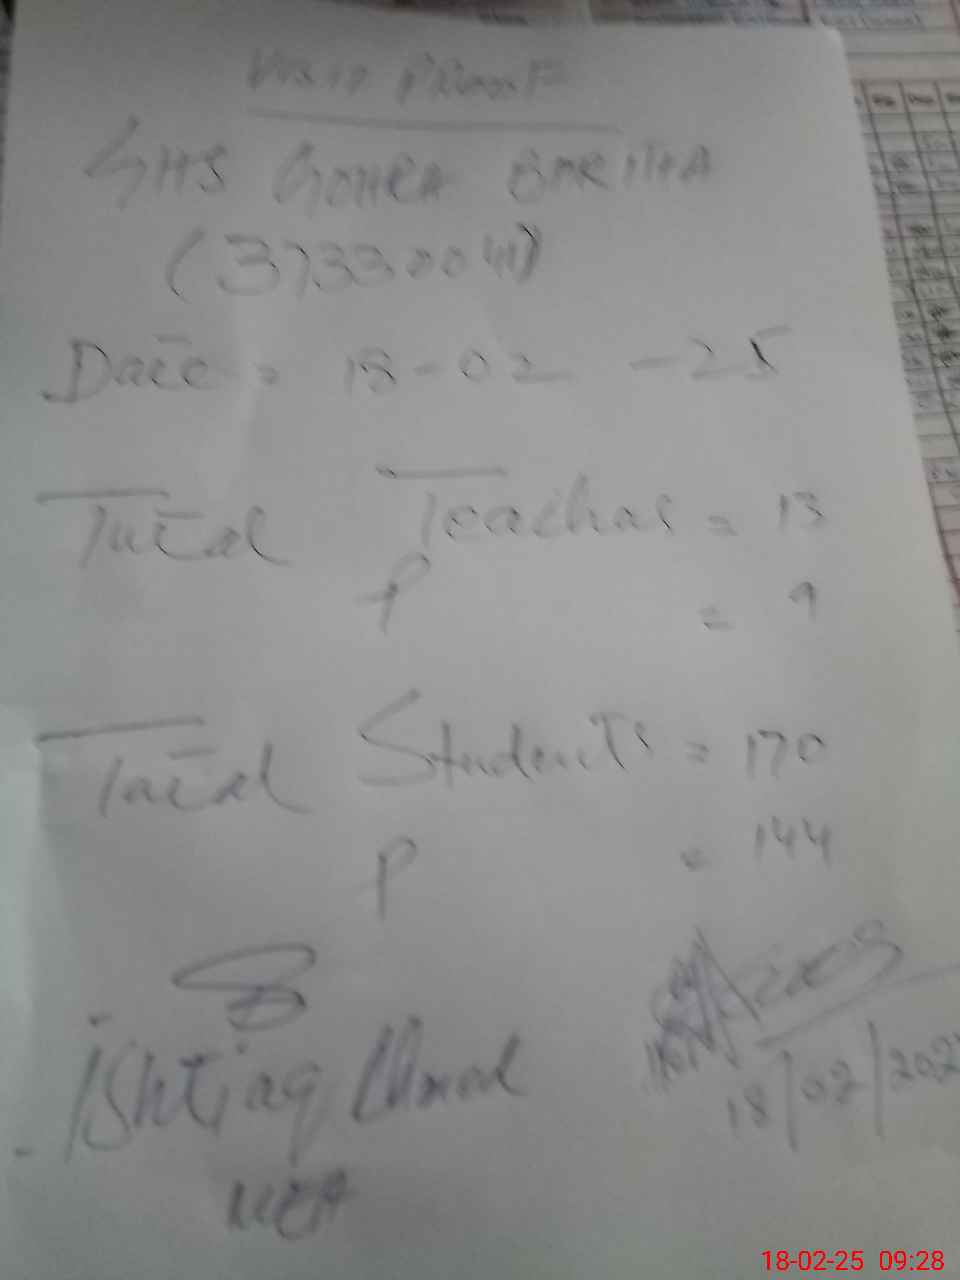 Visit Proof
GHS GOHRA BARITHA
(37330041)
Date = 18-02-25
Total Teachers = 13
P = 9
Total Students = 170
P = 144
Ishtiaq Ahmad
MEA
18/02/202
18-02-25 09:28